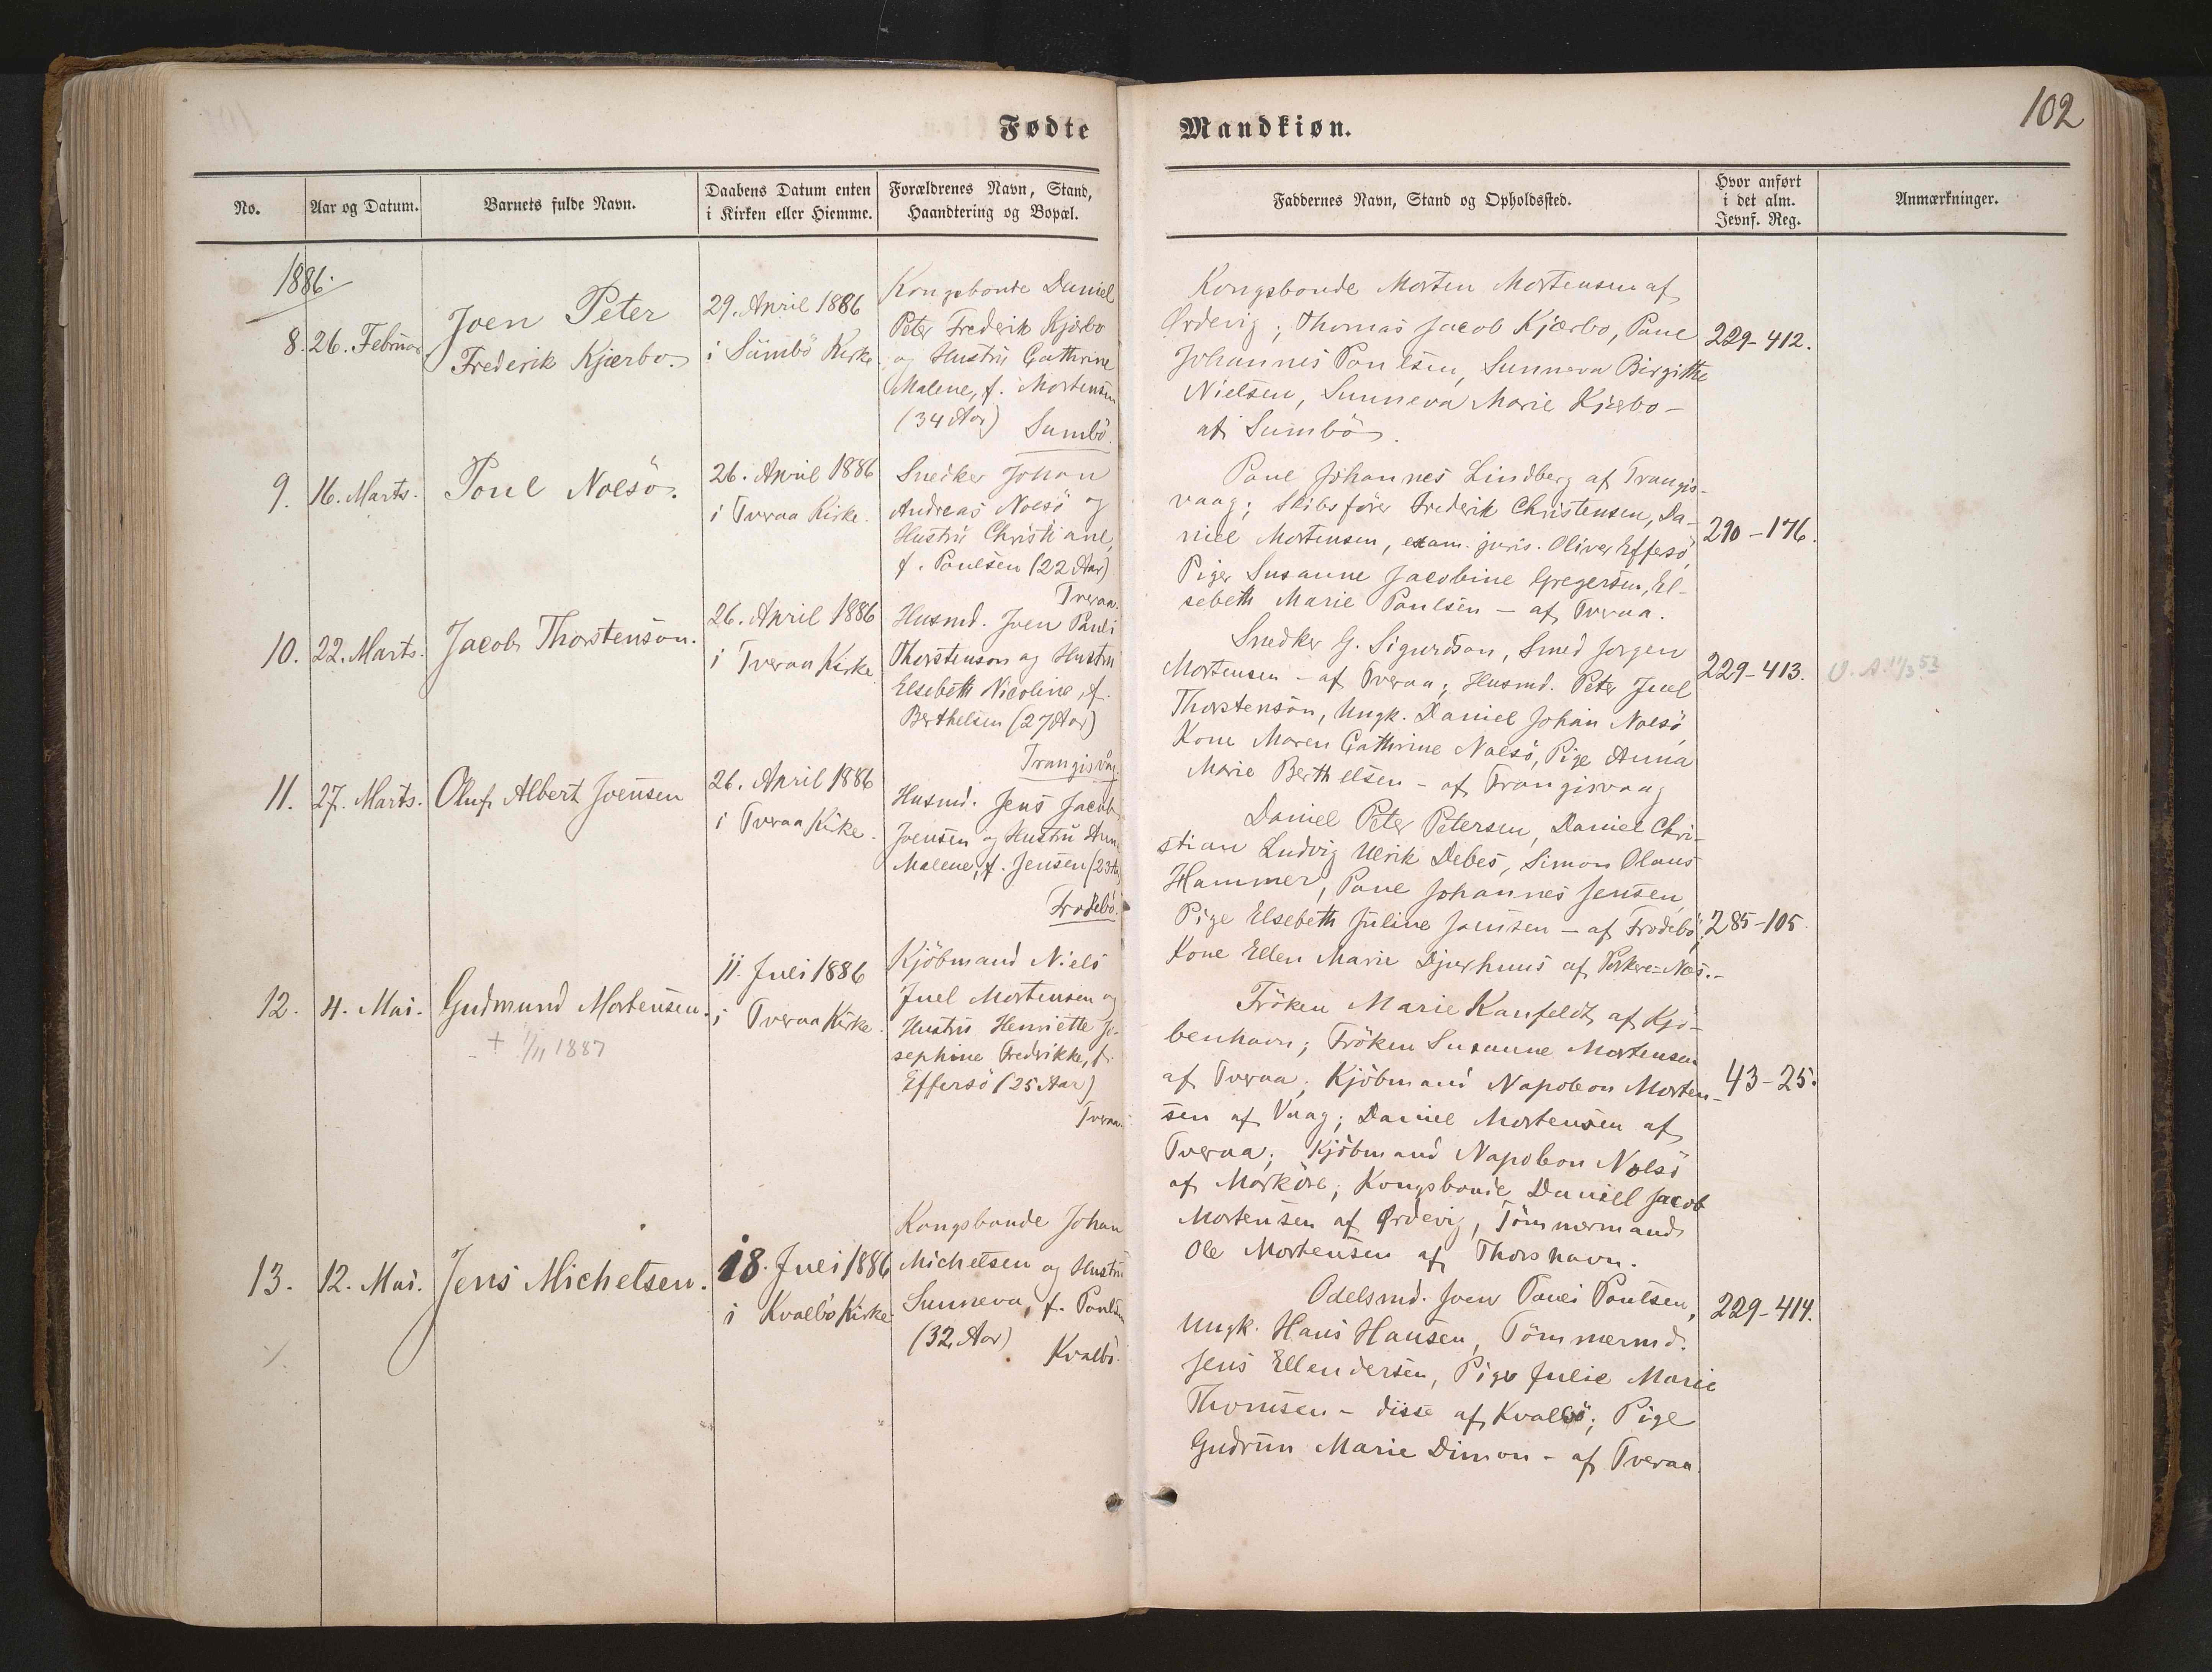 102
Fødte Mandkiøn.
No.
Aar og Datum.
Barnets fulde Navn.
Daabens Datum enten
i Kirken eller Hiemme.
Forældrenes Navn, Stand,
Haandtering og Bopæl.
Faddernes Navn, Stand og Opholdssted.
Hvor anført
i det alm.
Jevnf. Reg.
Anmærkninger.
1886.
8. 26. Februar
Joen Peter
Frederik Kjærbo.
29. April 1886
i Sumbö Kirke.
Kongsbonde Daniel
Peter Frederik Kjærbo
og Hustru Cathrine
Malene, f. Mortensen
(34 Aar)
Sumbö.
Kongsbonde Morten Mortensen af
Ørdevig; Thomas Jacob Kjærbo, Poul
Johannes Poulsen, Sunneva Birgitthe
Nielsen, Sunneva Marie Kjærbo -
af Sumbö.
229-412.
9. 16. Marts.
Poul Nolsö.
26. April 1886
i Tveraa Kirke.
Snedker Johan
Andreas Nolsö og
Hustru Christiane,
f. Poulsen (22 Aar)
Tveraa.
Poul Johannes Lindberg af Trangis-
vaag; Skibsförer Frederik Christensen, Da-
niel Mortensen, exam. juris. Oliver Effersö,
Piger Susanne Jacobine Gregersen, El-
sebeth Marie Poulsen - af Tveraa.
290-176.
10. 22. Marts.
Jacob Thorstenson.
26. April 1886
i Tveraa Kirke.
Husmd. Joen Pauli
Thorstenson og Hustru
Elsebeth Nicoline, f.
Berthelsen (27 Aar)
Trangisvåg.
Snedker G. Sigurdson, Smed Jørgen
Mortensen - af Tveraa; Husmd. Peter Juel
Thorstenson, Ungk. Daniel Johan Nolsö,
Kone Maren Cathrine Nolsö, Pige Anna
Marie Berthelsen - af Trangisvaag
229-413.
11. 27. Marts.
Oluf Albert Joensen
26. April 1886
i Tveraa Kirke.
Husmd. Jens Jacob
Joensen og Hustru Anne
Malene, f. Jensen (23 Aar)
Frodebö.
Daniel Peter Petersen, Daniel Chri-
stian Ludvig Ulrik Debes, Simon Olaus
Hammer, Poul Johannes Jensen,
Pige Elsebeth Juline Joensen - af Frodebö;
Kone Ellen Marie Djurhuus af Porkere=Næs.-
285-105.
12. 4. Mai.
Gudmund Mortensen.
+ 1/11 1887
11. Juli 1886
i Tveraa Kirke.
Kjöbmand Niels
Juel Mortensen og
Hustru Henriette Jo-
sephine Fredrikke, f.
Effersö (25 Aar)
Tveraa
Fröken Marie Kanfeldt af Kjö-
benhavn; Fröken Susanne Mortensen
af Tveraa; Kjöbmand Napoleon Morten-
sen af Vaag; Daniel Mortensen af
Tveraa; Kjöbmand Napoleon Nolsö
af Morköre; Kongsbonde Daniel Jacob
Mortensen af Ørdevig, Tömmermand
Ole Mortensen af Thorshavn.
43-25.
13. 12. Mai.
Jens Michelsen.
18. Juli 1886
i Kvalbö Kirke
Kongsbonde Johan
Michelsen og Hustru
Sunneva, f. Poulsen
(32 Aar)
Kvalbö.
Odelsmd. Joen Pauli Poulsen,
Ungk. Hans Hansen, Tömmermd.
Jens Ellendersen, Pige Julie Marie
Thomsen - disse af Kvalbö; Pige
Gudrun Marie Dimon - af Tveraa.
229-414.